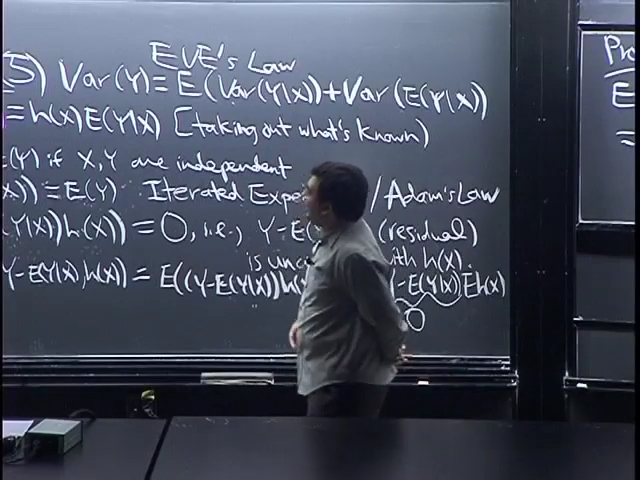 EVE's Law
(5) Var(Y) = E(Var(Y|X)) + Var(E(Y|X))
= h(X)E(Y|X) [taking out what's known)
(Y) if X,Y are independent
X)) = E(Y) Iterated Expe / Adam's Law
(Y|X))h(X)) = 0, i.e., Y-E( (residual)
is unc with h(X).
Y-E(Y|X), h(X)) = E((Y-E(Y|X))h( -E(Y|X))Eh(X)
0
Pro
E
=